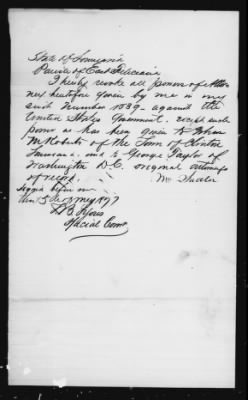 State of Louisiana
Parish of East Feliciana
I hereby revoke all powers of attor
ney heretofore given by me in my
suit Number 1539 - against the
United States Government. except such
power as has been given to
McRoberts of the Town of Clinton
Louisiana. and to George Taylor of
Washington D.C. original attorneys
of record.
before me
Official